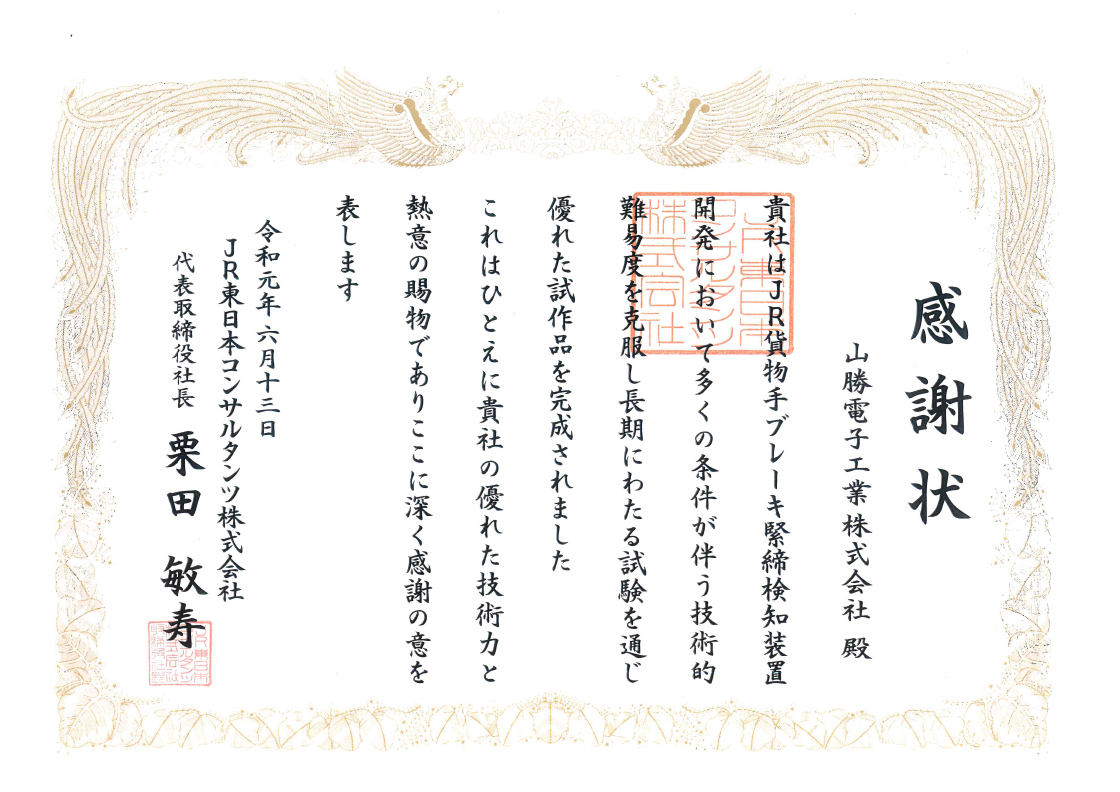 感謝状
山勝電子工業株式会社 殿
貴社はJR貨物手ブレーキ緊締検知装置
開発において多くの条件が伴う技術的
難易度を克服し長期にわたる試験を通じ
優れた試作品を完成されました
これはひとえに貴社の優れた技術力と
熱意の賜物でありここに深く感謝の意を
表します
令和元年六月十三日
JR東日本コンサルタンツ株式会社
代表取締役社長 栗田 敏寿
JR東日本
コンサルタンツ
株式会社